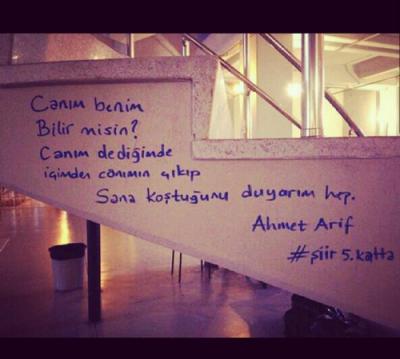 Canım benim
Bilir misin?
Canım dediğimde
içimden canımın çıkıp
Sana koştuğunu duyarım hep.
Ahmet Arif
#şiir 5.katta